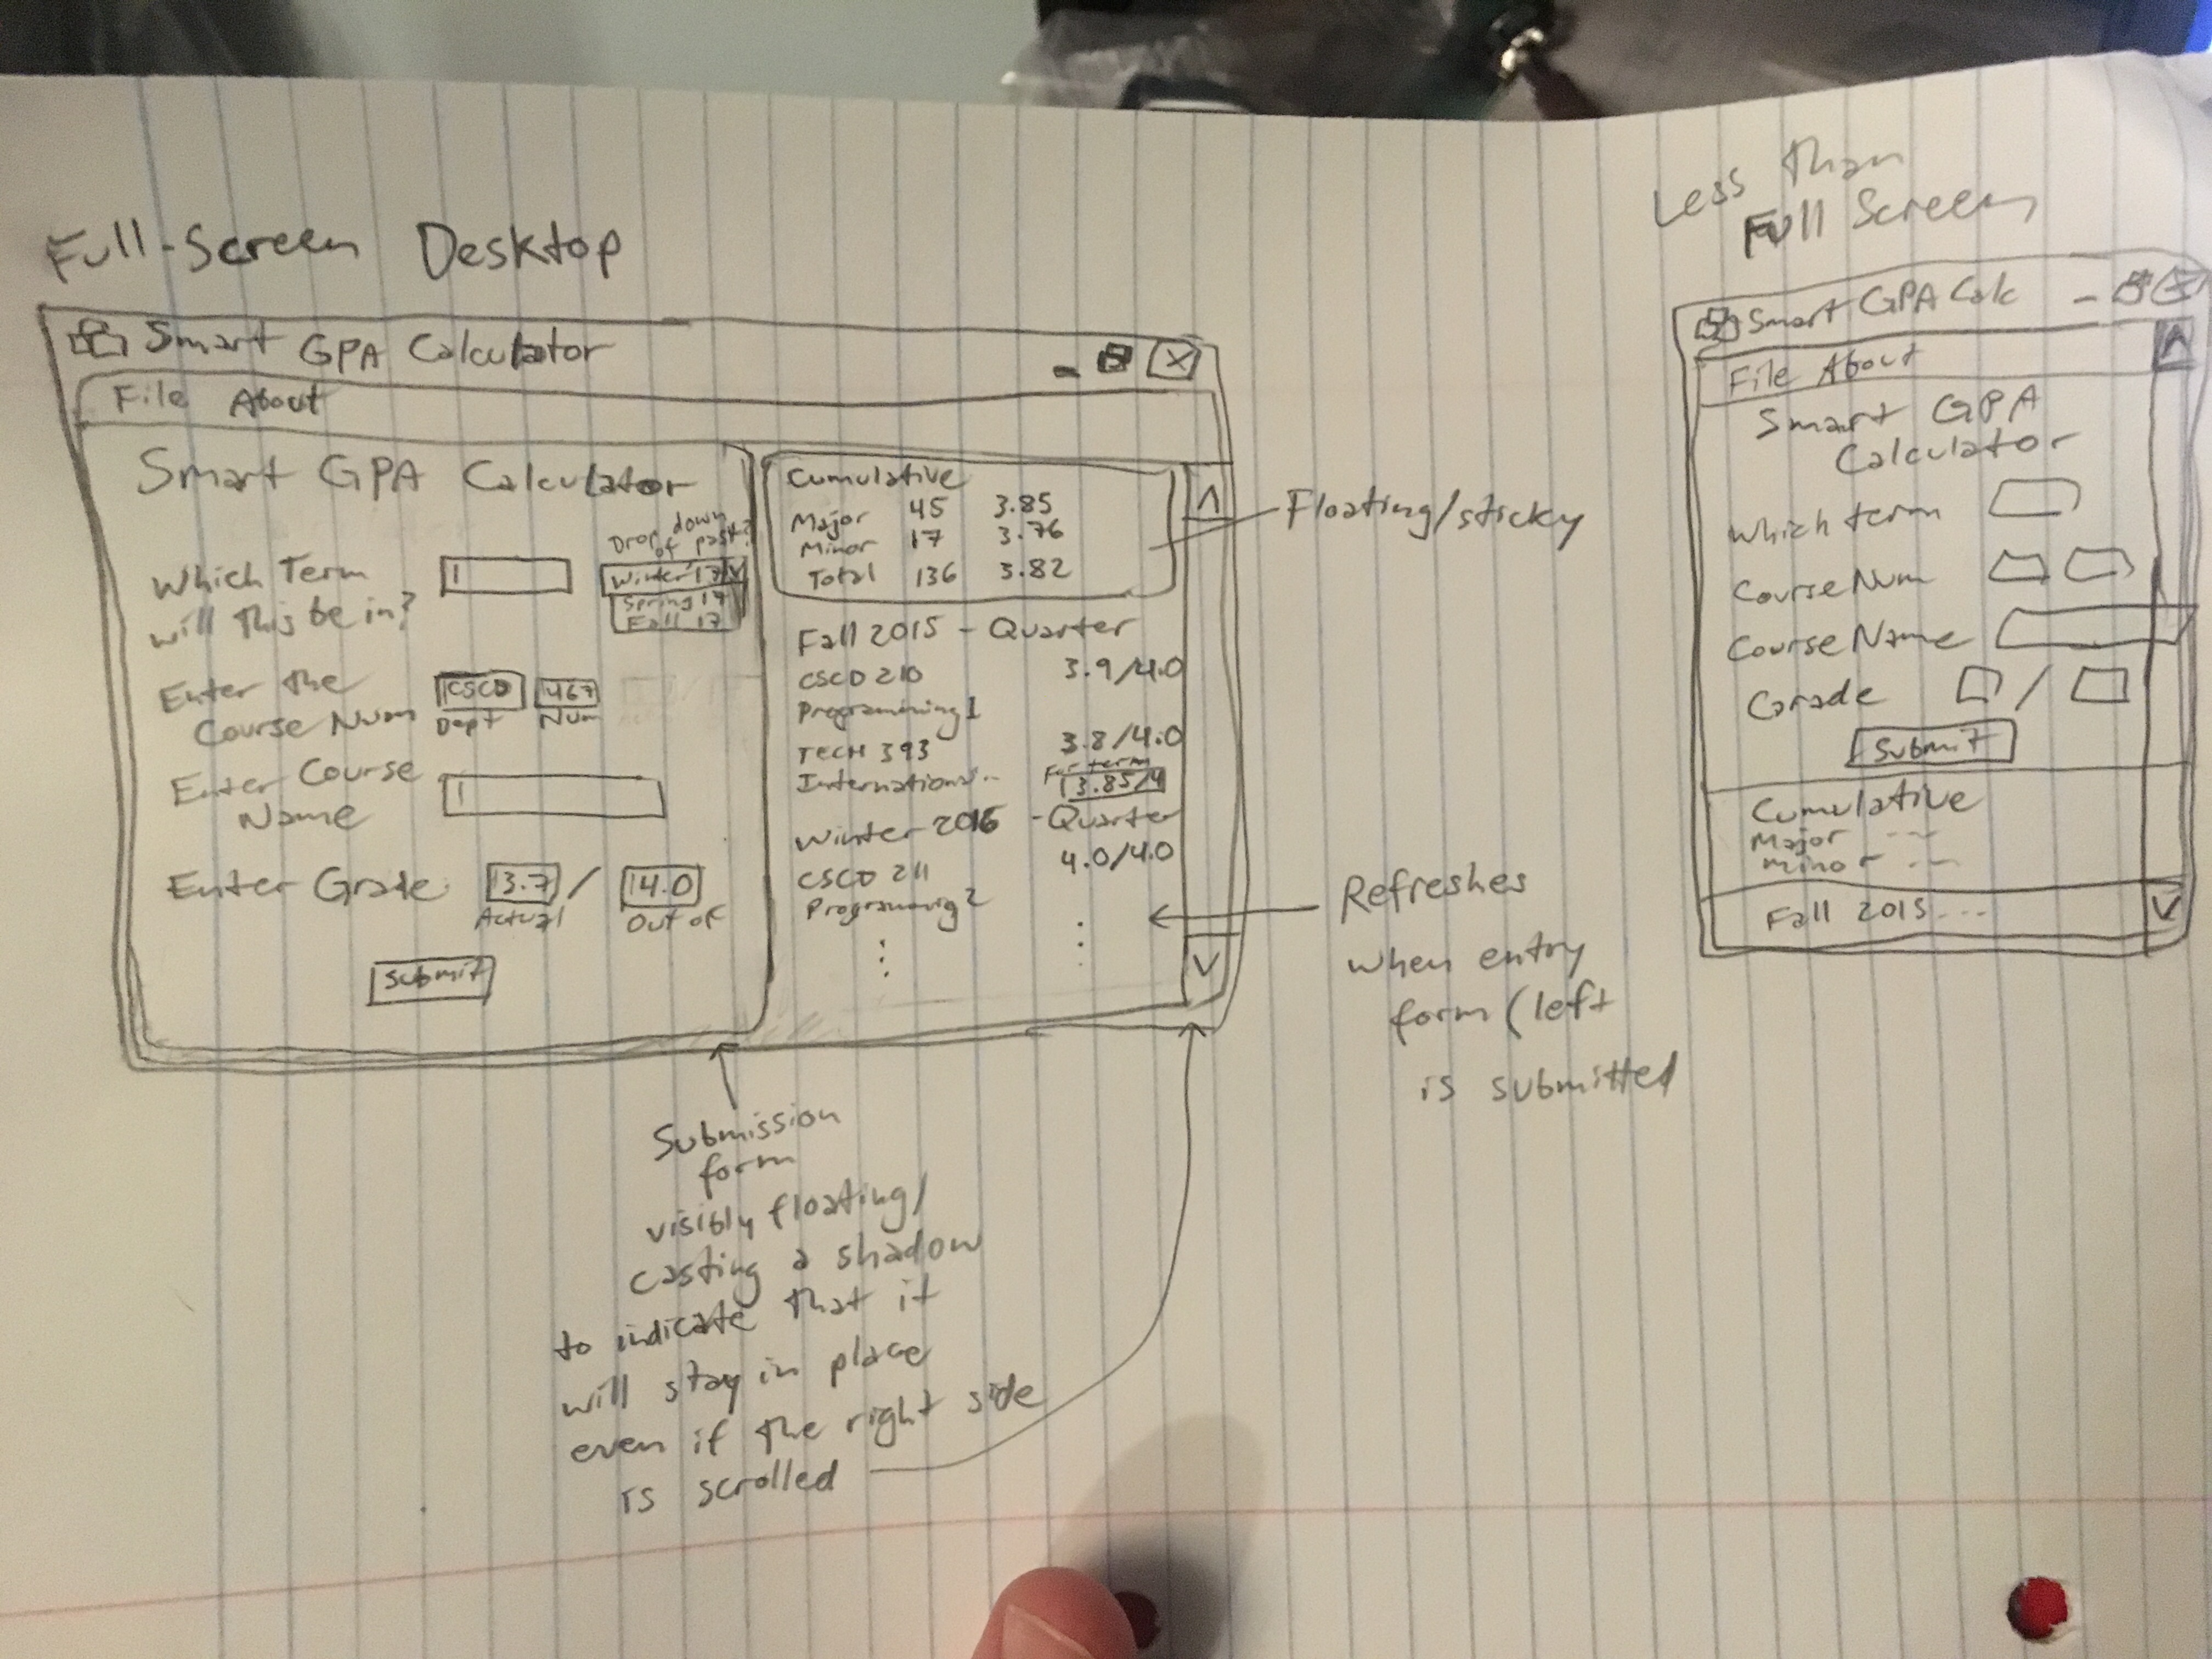 Full-Screen Desktop
Smart GPA Calculator
File About
Smart GPA Calculator
Which Term
will this be in?
Drop down
of past?
Winter 17 V
Spring 17
Fall 17
Enter the
Course Num
CSCD 467
Dept Num
Enter Course
Name
Enter Grade 3.7 / 4.0
Actual Out of
Submit
Cumulative
Major 45 3.85
Minor 17 3.76
Total 136 3.82
Fall 2015 - Quarter
CSCD 210 3.9/4.0
Programming 1
TECH 393 3.8/4.0
International... For term
3.85/4
Winter 2016 - Quarter
4.0/4.0
CSCD 211
Programming 2
Floating/sticky
Refreshes
when entry
form (left
is submitted
Submission
form
visibly floating/
casting a shadow
to indicate that it
will stay in place
even if the right side
is scrolled
Less Than
Full Screen
Smart GPA Calc
File About
Smart GPA
Calculator
Which term
Course Num
Course Name
Grade /
Submit
Cumulative
Major --
Minor --
Fall 2015 ...